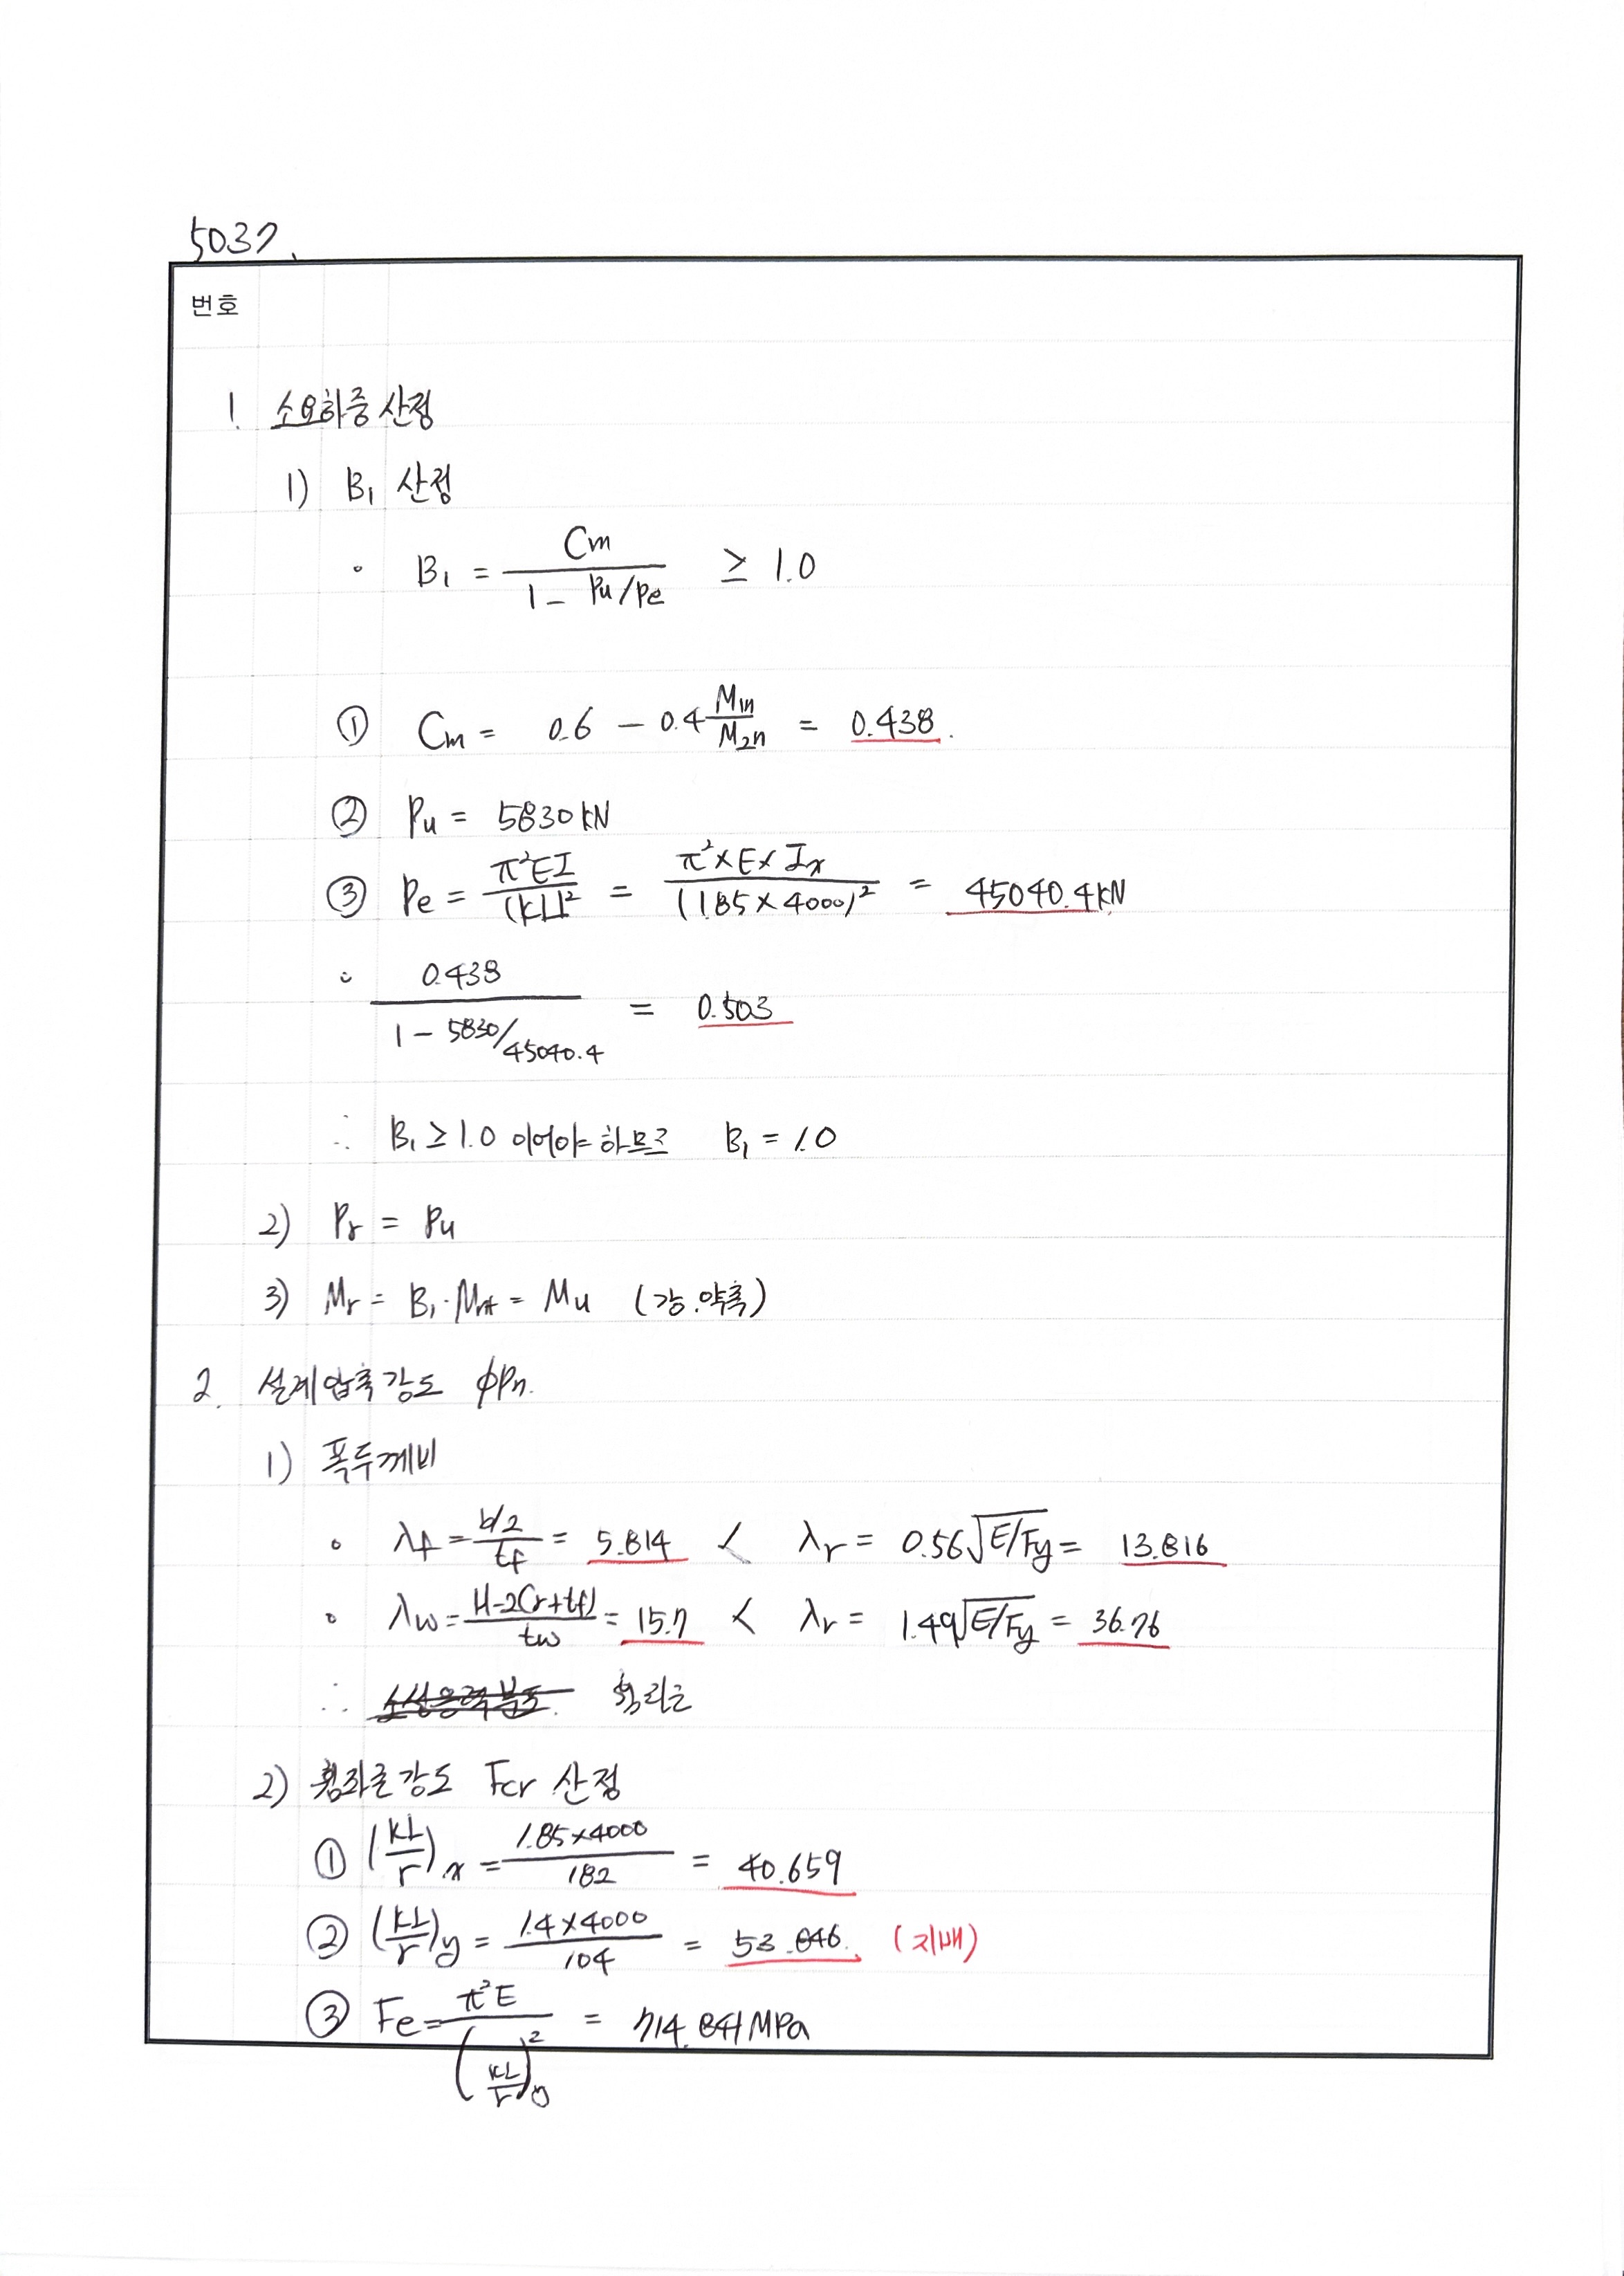 5037.
번호
1. 소요하중 산정
1) B₁ 산정
∘ B₁ = Cm / (1 - Pu/Pe) ≥ 1.0
① Cm = 0.6 - 0.4 M1n/M2n = 0.438.
② Pu = 5830kN
③ Pe = π²EI / (kL)² = π²×E×Ix / (1.85×4000)² = 45040.4kN
∘ 0.438 / (1 - 5830/45040.4) = 0.503
∴ B₁ ≥ 1.0 이어야 하므로 B₁ = 1.0
2) Pr = Pu
3) Mr = B₁·Mnt = Mu (강.약축)
2. 설계압축강도 ϕPn.
1) 폭두께비
∘ λf = (b/2)/tf = 5.814 < λr = 0.56√(E/Fy) = 13.816
∘ λw = (H-2(r+tf))/tw = 15.7 < λr = 1.49√(E/Fy) = 36.76
∴
2) 휨좌굴강도 Fcr 산정
① (kL/r)x = 1.85×4000 / 182 = 40.659
② (kL/r)y = 1.4×4000 / 104 = 53.846. (지배)
③ Fe = π²E / (kL/r)²y = 714.841MPa